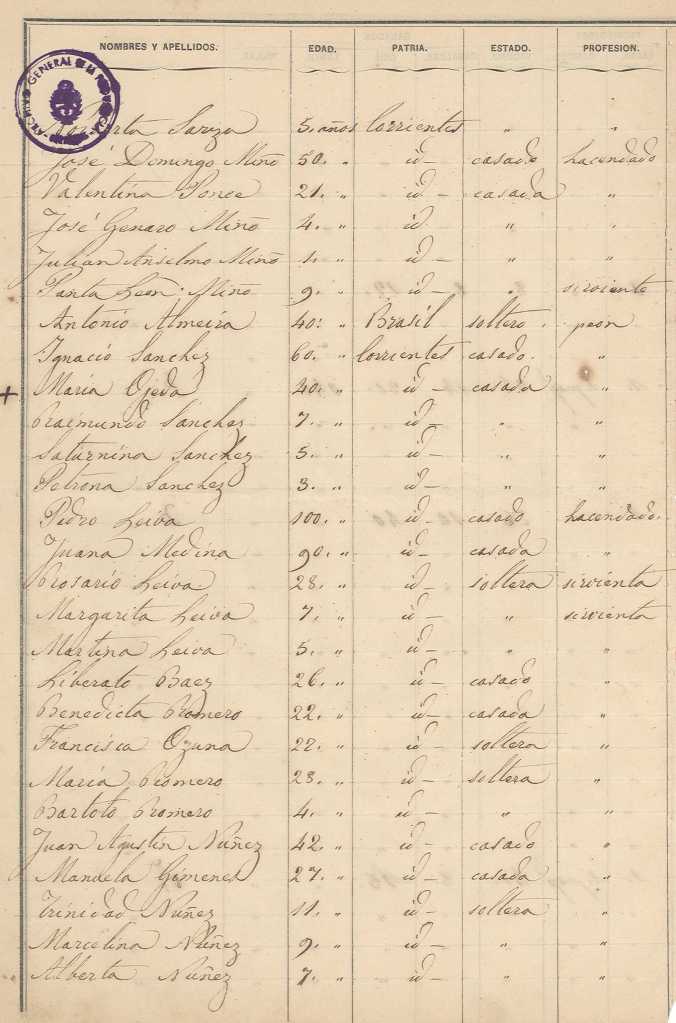 NOMBRES Y APELLIDOS. EDAD. PATRIA. ESTADO. PROFESION.
ARCHIVO GENERAL DE LA PROVINCIA
5. años Corrientes " "
José Domingo Miño 50. " id- casado hacendado
Valentina Ponce 21. " id- casada "
José Genaro Miño 4. " id. " "
Julian Anselmo Miño 1. " id- " "
Panta Leon Miño 9. " id- " sirviente
Antonio Almeira 40. " Brasil soltero. peon
Ignacio Sanchez 60. " Corrientes casado. "
+ Maria Ojeda 40. " id- casada "
Raimundo Sanchez 7. " id- " "
Saturnina Sanchez 5. " id- " "
Petrona Sanchez 3. " id- " "
Pedro Leiva 100. " id- casado hacendado.
Juana Medina 90. " id- casada "
Rosario Leiva 28. " id- soltera sirvienta
Margarita Leiva 7. " id- " sirvienta
Martina Leiva 5. " id- " "
Liberato Baez 26. " id- casado "
Benedicta Romero 22. " id- casada "
Francisca Ozuna 22. " id- soltera "
Maria Romero 23. " id- soltera "
Bartolo Romero 4. " id- " "
Juan Agustin Nuñez 42. " id- casado "
Manuela Gimenes 27. " id- casada "
Trinidad Nuñez 11. " id- soltera "
Marcelina Nuñez 9. " id- " "
Alberta Nuñez 7. " id- " "